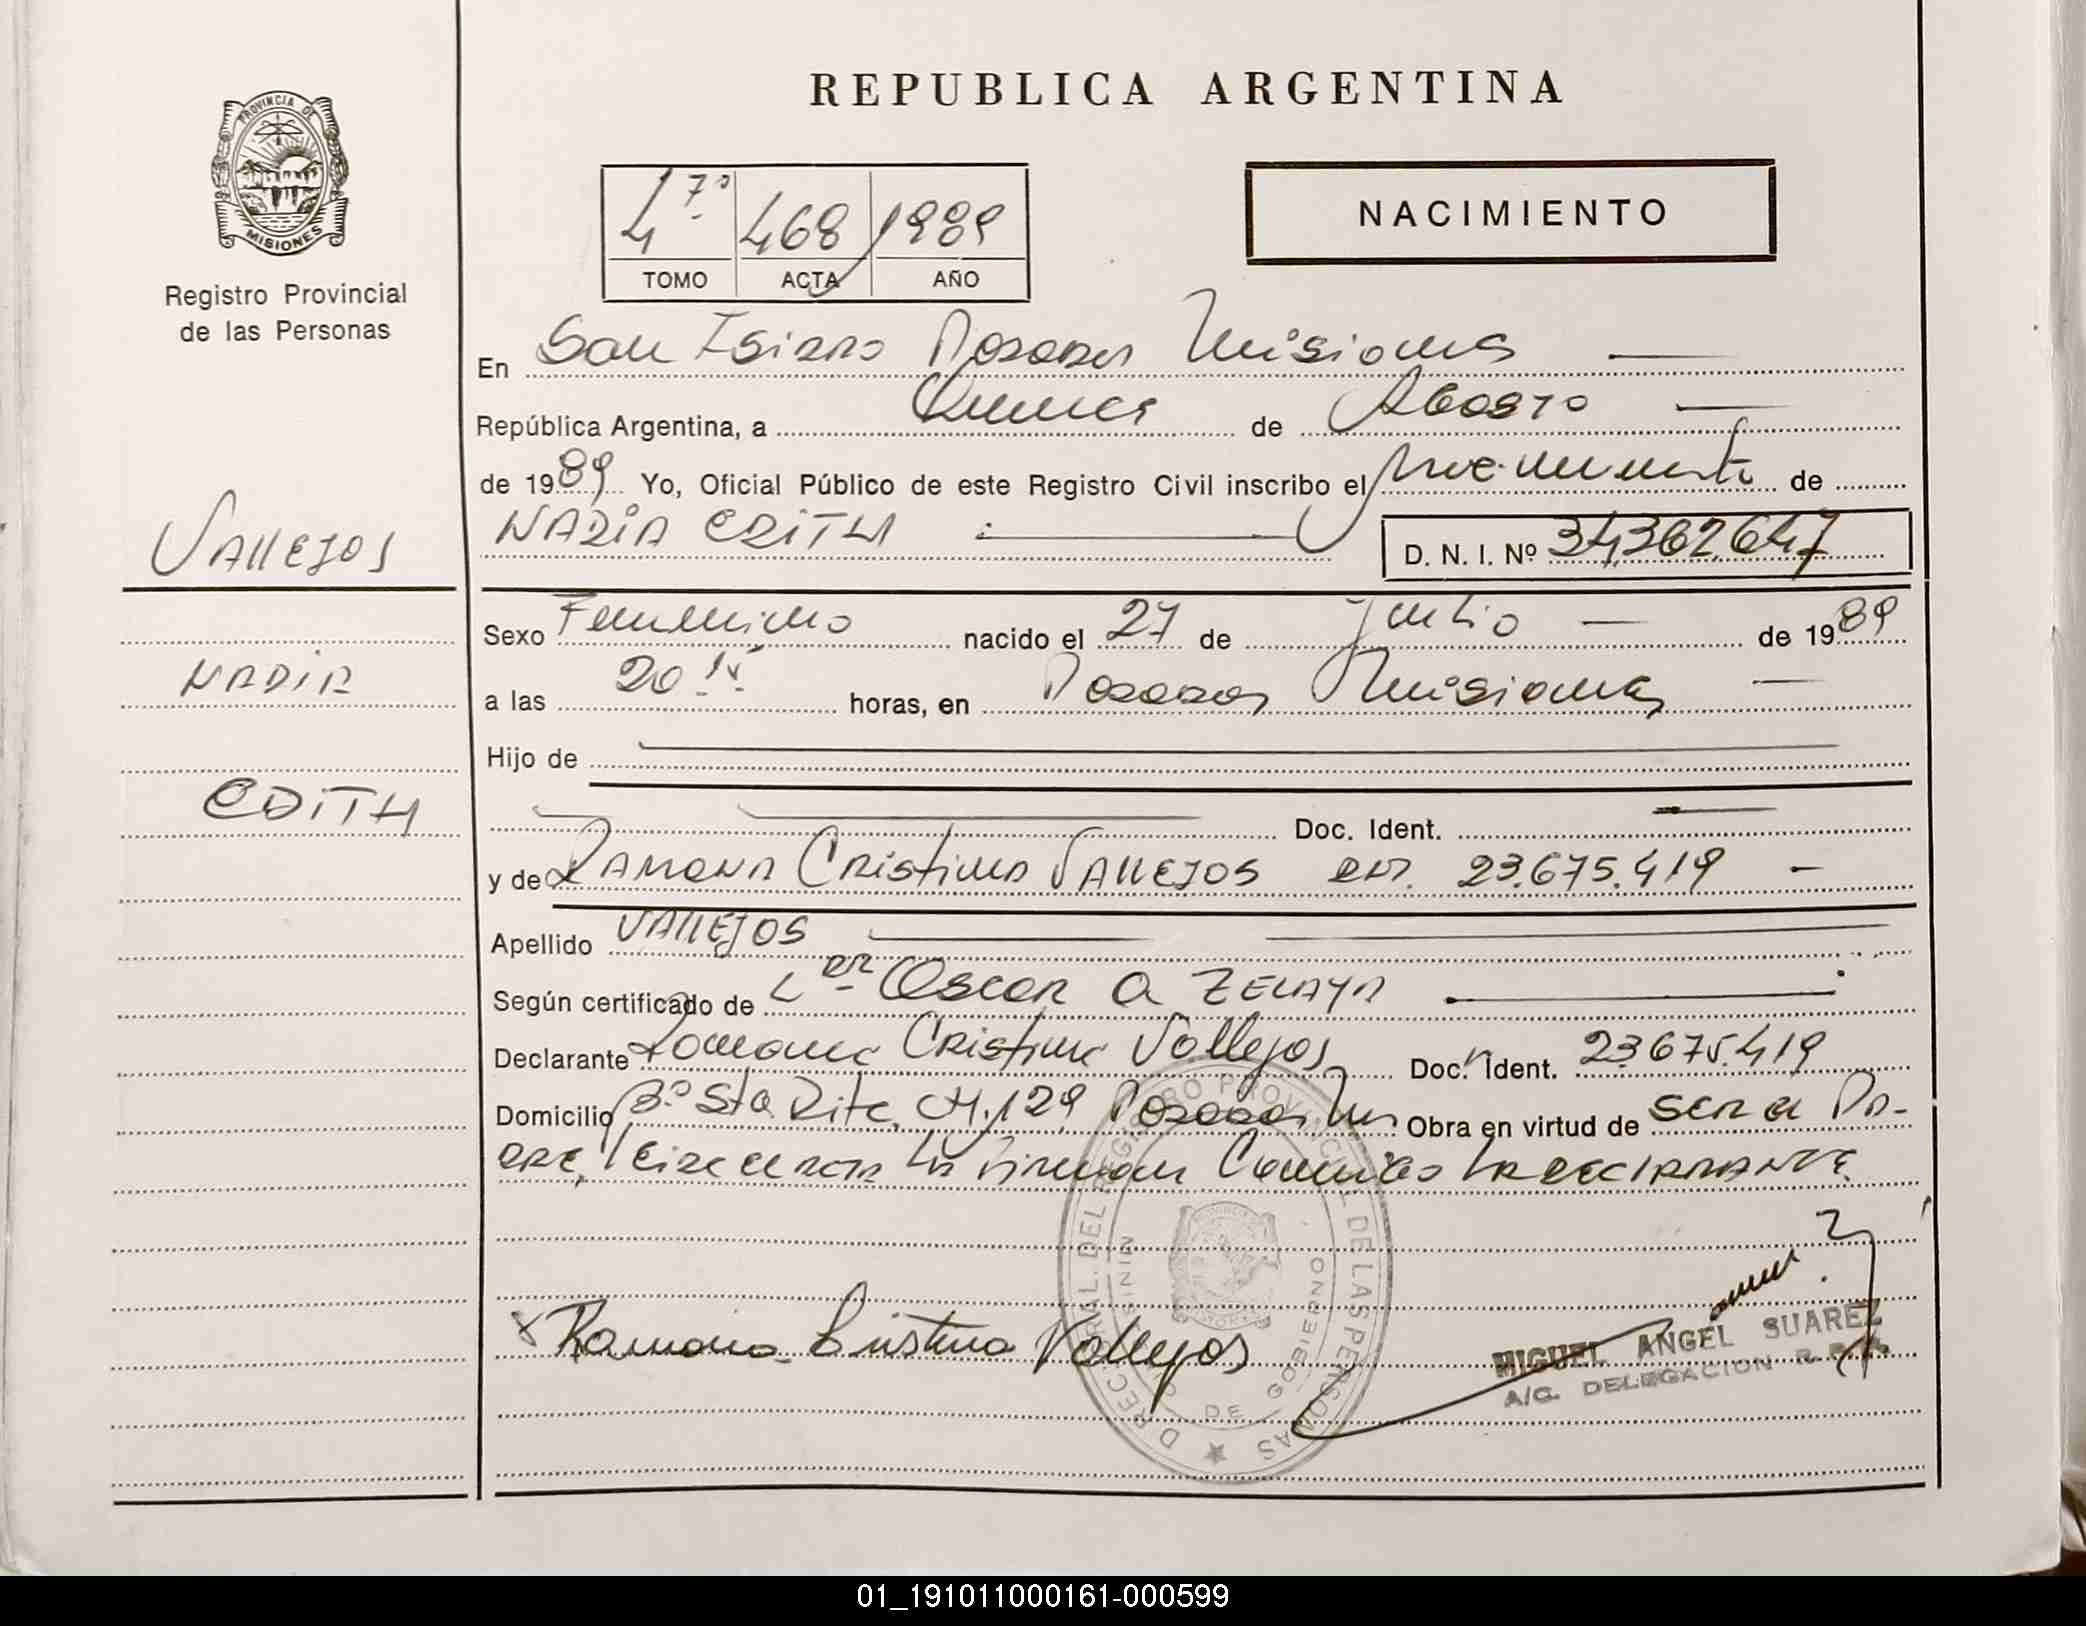 REPUBLICA ARGENTINA
PROVINCIA DE MISIONES
Registro Provincial
de las Personas
4 7º 468 1989
TOMO ACTA AÑO
NACIMIENTO
En San Isidro Posadas Misiones
República Argentina, a Quince de Agosto
de 1989 Yo, Oficial Público de este Registro Civil inscribo el nacimiento de
VALLEJOS
NADIA EDITH D. N. I. Nº 34.362.647
Sexo Femenino nacido el 27 de Julio de 1989
NADIA
a las 20.15 horas, en Posadas Misiones
Hijo de
EDITH
Doc. Ident.
y de RAMONA Cristina VALLEJOS DNI. 23.675.419
Apellido VALLEJOS
Según certificado de Oscar A ZELAYA
Declarante Ramona Cristina Vallejos Doc. Ident. 23.675.419
Domicilio Bº Sta Rita CH.129 Posadas Mes Obra en virtud de SER LA
Leida el acta la firman Conmigo LA DECLARANTE
DIREC. GRAL. DEL REGISTRO PROVINCIAL DE LAS PERSONAS
DE GOBIERNO
x Ramona Cristina Vallejos
MIGUEL ANGEL SUAREZ
A/C. DELEGACION R. P. P.
01_191011000161-000599